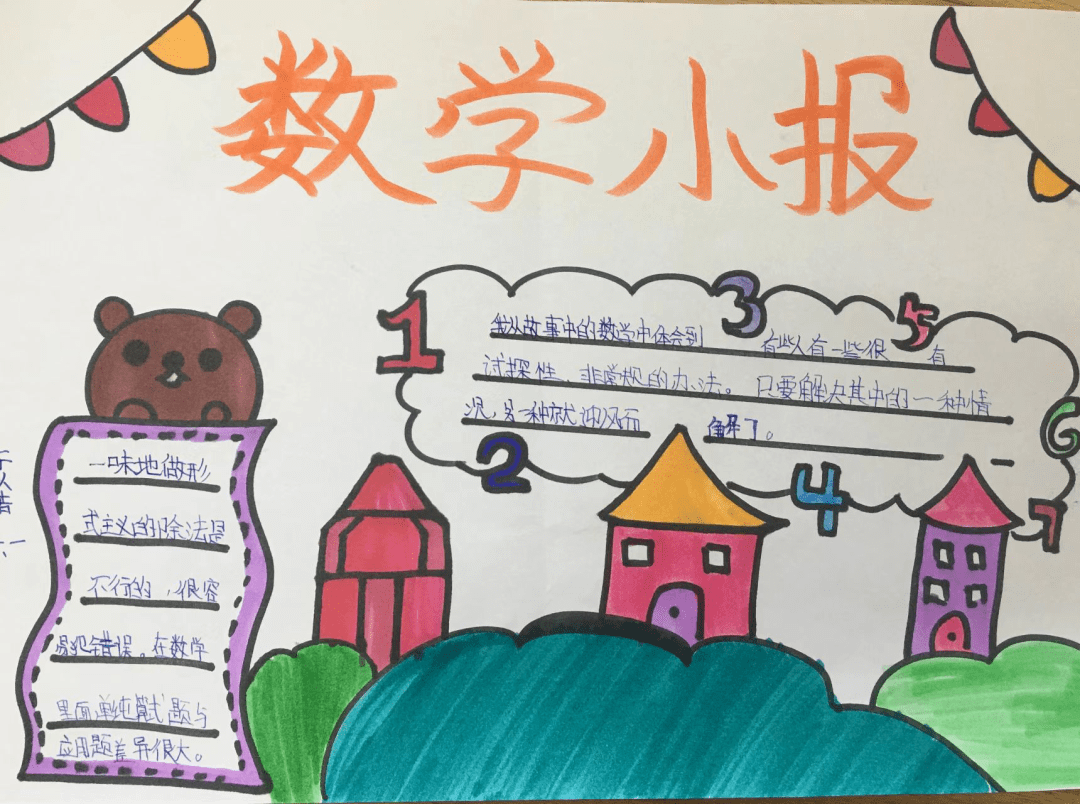 数学小报
1
3
5
我从故事中的数学中体会到 有些人有一些很 有
试探性、非常规的办法。只要解决其中的一种情
况,另一种就迎刃而 解了。
6
2
4
7
一味地做形
式主义的除法是
不行的,很容
易犯错误。在数学
里面单纯算式题与
应用题差异很大。